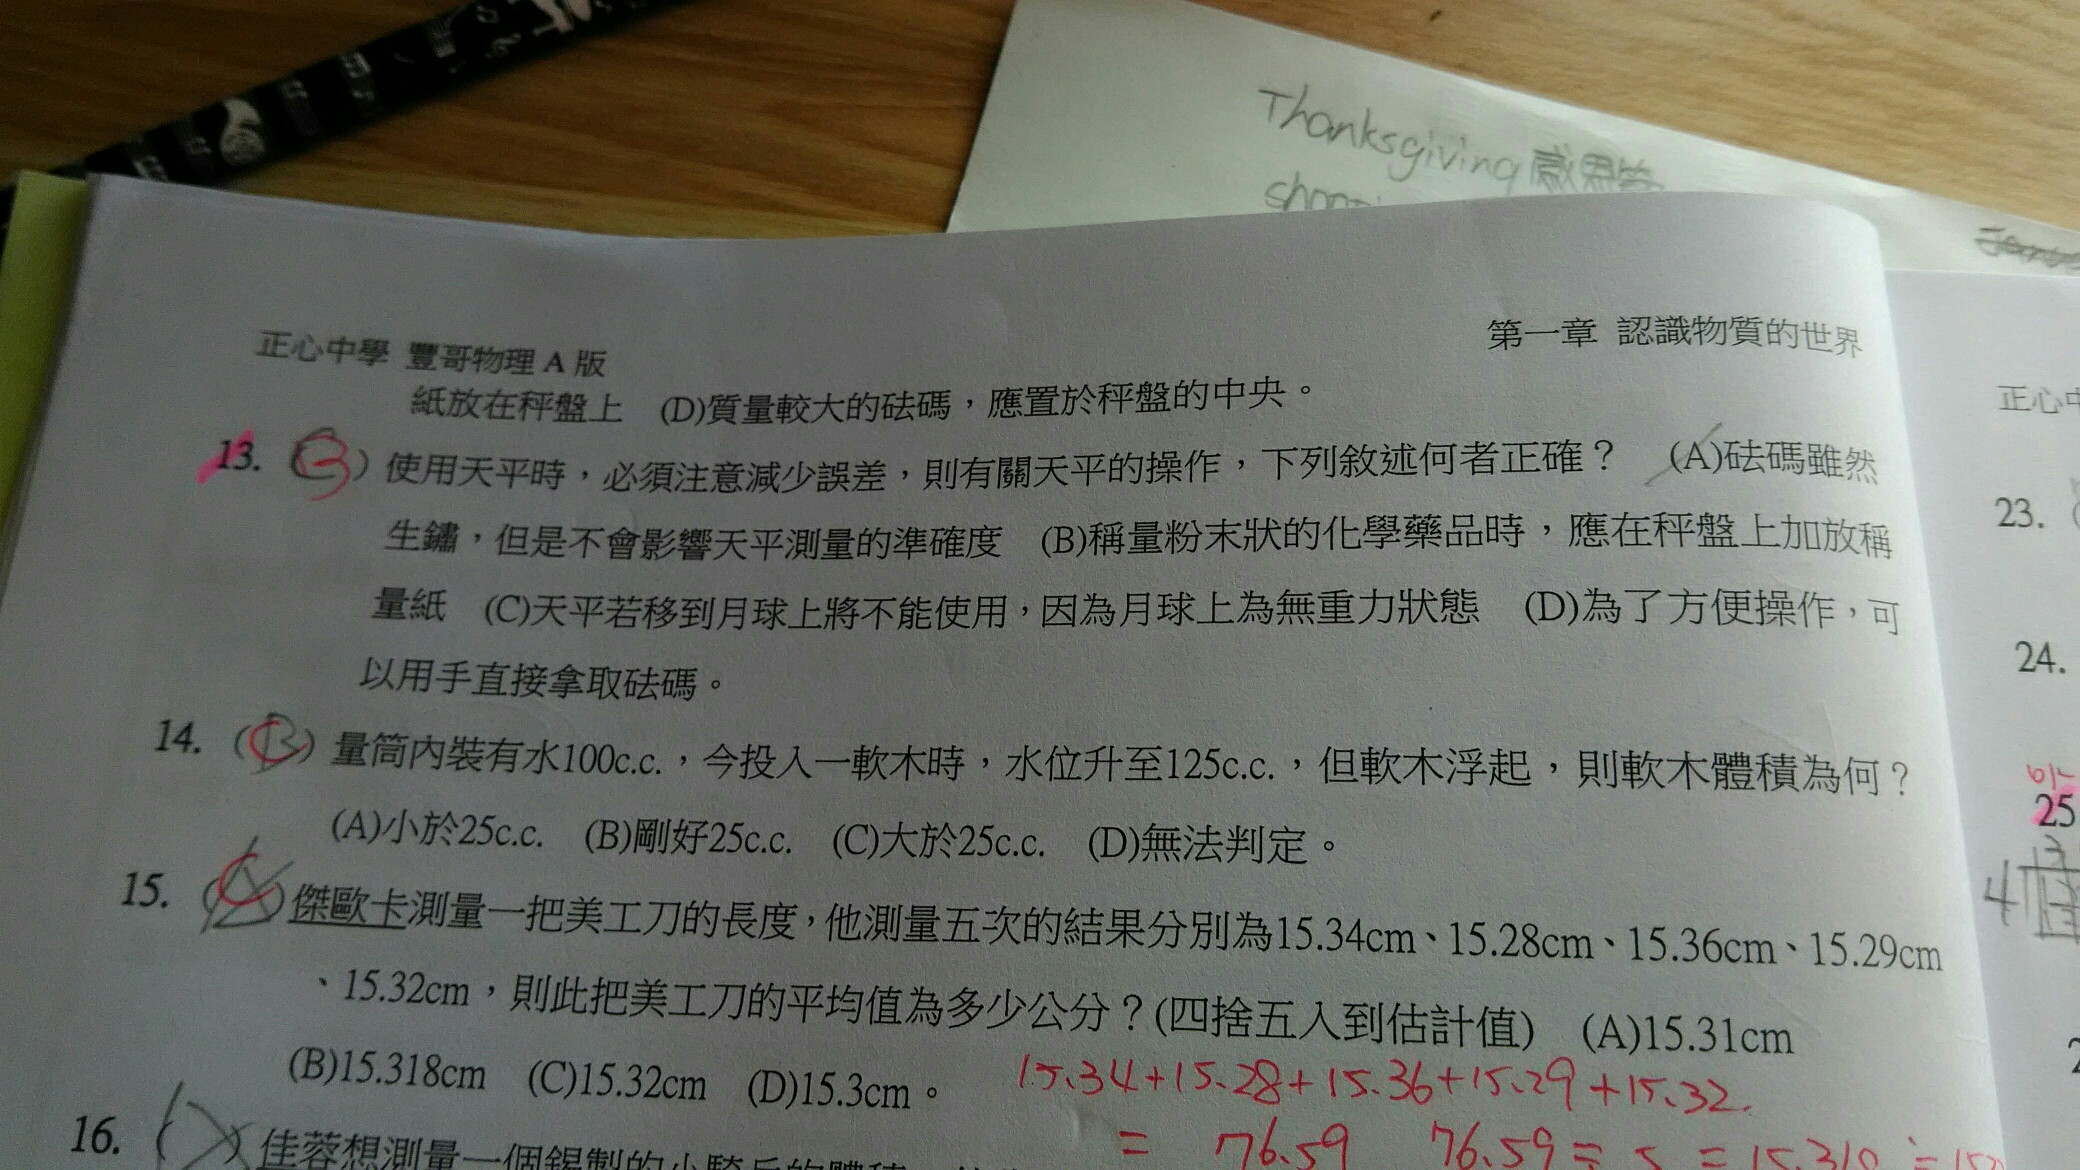 Thanksgiving 感恩節
正心中學 豐哥物理 A 版
第一章 認識物質的世界
紙放在秤盤上 (D)質量較大的砝碼，應置於秤盤的中央。
13. (B) 使用天平時，必須注意減少誤差，則有關天平的操作，下列敘述何者正確？ (A)砝碼雖然
生鏽，但是不會影響天平測量的準確度 (B)稱量粉末狀的化學藥品時，應在秤盤上加放稱
量紙 (C)天平若移到月球上將不能使用，因為月球上為無重力狀態 (D)為了方便操作，可
以用手直接拿取砝碼。
14. (C) 量筒內裝有水100c.c.，今投入一軟木時，水位升至125c.c.，但軟木浮起，則軟木體積為何？
(A)小於25c.c. (B)剛好25c.c. (C)大於25c.c. (D)無法判定。
15. (C) 傑歐卡測量一把美工刀的長度，他測量五次的結果分別為15.34cm、15.28cm、15.36cm、15.29cm
、15.32cm，則此把美工刀的平均值為多少公分？(四捨五入到估計值) (A)15.31cm
(B)15.318cm (C)15.32cm (D)15.3cm。
15.34+15.28+15.36+15.29+15.32
= 76.59 76.59÷5=15.318
16. ( ) 佳蓉想測量一個錫製的小騎兵的體積
正心中
23.
24.
25
4